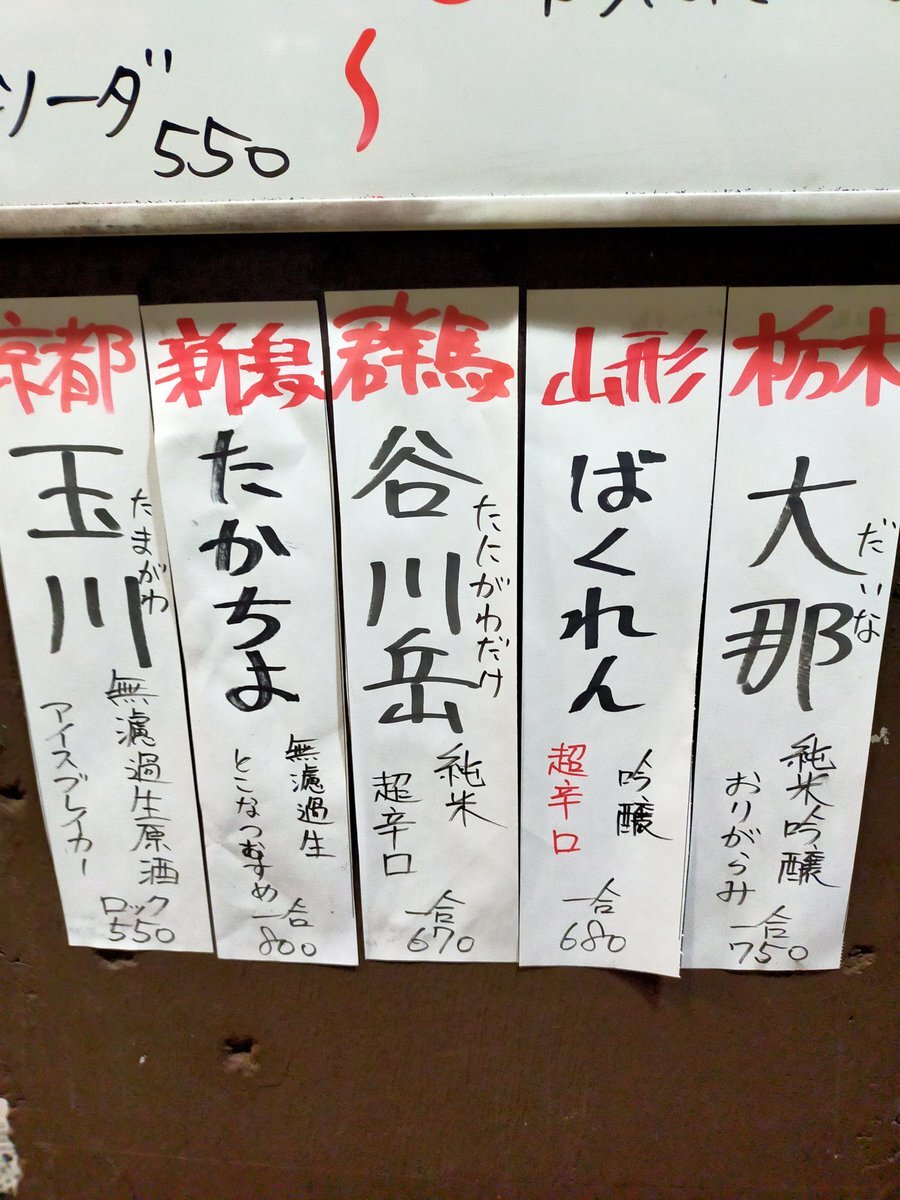 ソーダ
550
栃木
大那
だいな
純米吟醸
おりがらみ
一合
750
山形
ばくれん
吟醸
超辛口
一合
680
群馬
谷川岳
たにがわだけ
純米
超辛口
一合
670
新潟
たかちよ
無濾過生
とこなつむすめ
一合
800
京都
玉川
たまがわ
無濾過生原酒
アイスブレイカー
ロック
550